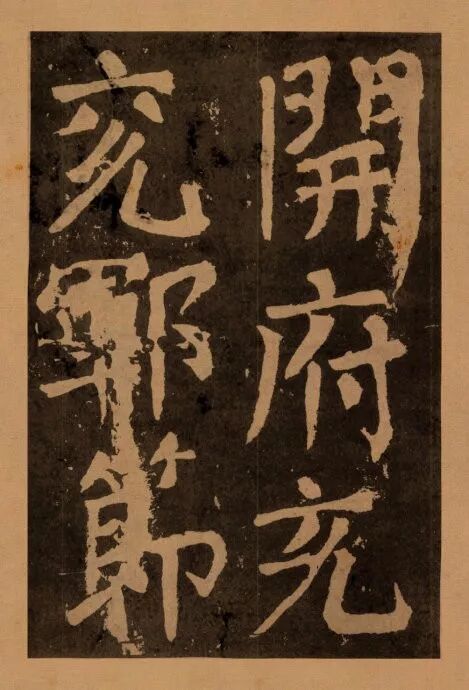 開府充
兖鄆節